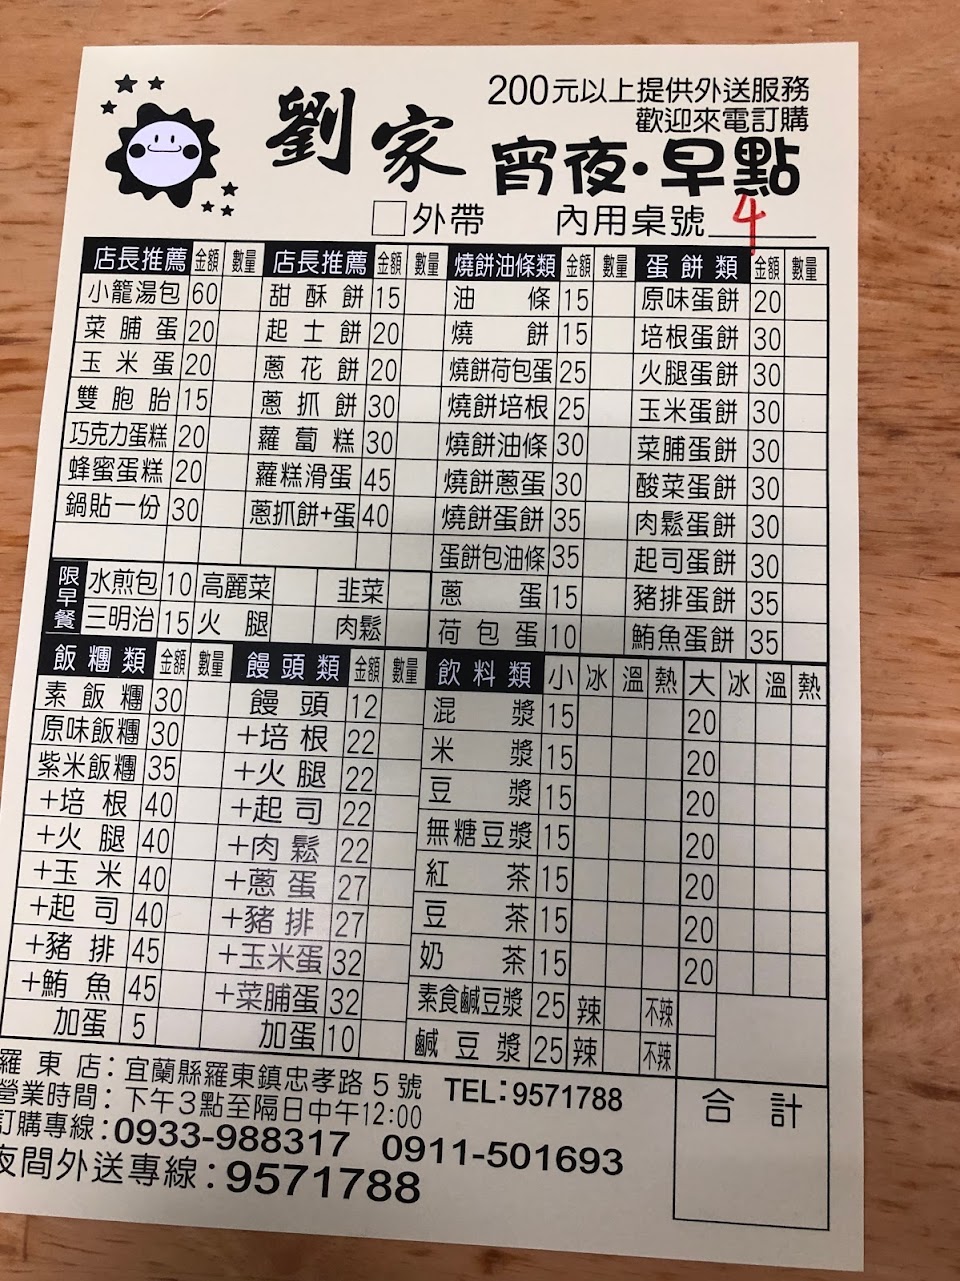 200元以上提供外送服務
歡迎來電訂購
劉家 宵夜·早點
外帶 內用桌號 4
店長推薦 金額 數量 店長推薦 金額 數量 燒餅油條類 金額 數量 蛋餅類 金額 數量
小籠湯包 60 甜酥餅 15 油條 15 原味蛋餅 20
菜脯蛋 20 起士餅 20 燒餅 15 培根蛋餅 30
玉米蛋 20 蔥花餅 20 燒餅荷包蛋 25 火腿蛋餅 30
雙胞胎 15 蔥抓餅 30 燒餅培根 25 玉米蛋餅 30
巧克力蛋糕 20 蘿蔔糕 30 燒餅油條 30 菜脯蛋餅 30
蜂蜜蛋糕 20 蘿糕滑蛋 45 燒餅蔥蛋 30 酸菜蛋餅 30
鍋貼一份 30 蔥抓餅+蛋 40 燒餅蛋餅 35 肉鬆蛋餅 30
蛋餅包油條 35 起司蛋餅 30
限早餐 水煎包 10 高麗菜 韭菜 蔥蛋 15 豬排蛋餅 35
三明治 15 火腿 肉鬆 荷包蛋 10 鮪魚蛋餅 35
飯糰類 金額 數量 饅頭類 金額 數量 飲料類 小 冰 溫 熱 大 冰 溫 熱
素飯糰 30 饅頭 12 混漿 15 20
原味飯糰 30 +培根 22 米漿 15 20
紫米飯糰 35 +火腿 22 豆漿 15 20
+培根 40 +起司 22 無糖豆漿 15 20
+火腿 40 +肉鬆 22 紅茶 15 20
+玉米 40 +蔥蛋 27 豆茶 15 20
+起司 40 +豬排 27 奶茶 15 20
+豬排 45 +玉米蛋 32 素食鹹豆漿 25 辣 不辣
+鮪魚 45 +菜脯蛋 32 鹹豆漿 25 辣 不辣
加蛋 5 加蛋 10
合計
羅東店：宜蘭縣羅東鎮忠孝路5號 TEL:9571788
營業時間：下午3點至隔日中午12:00
訂購專線：0933-988317 0911-501693
夜間外送專線：9571788